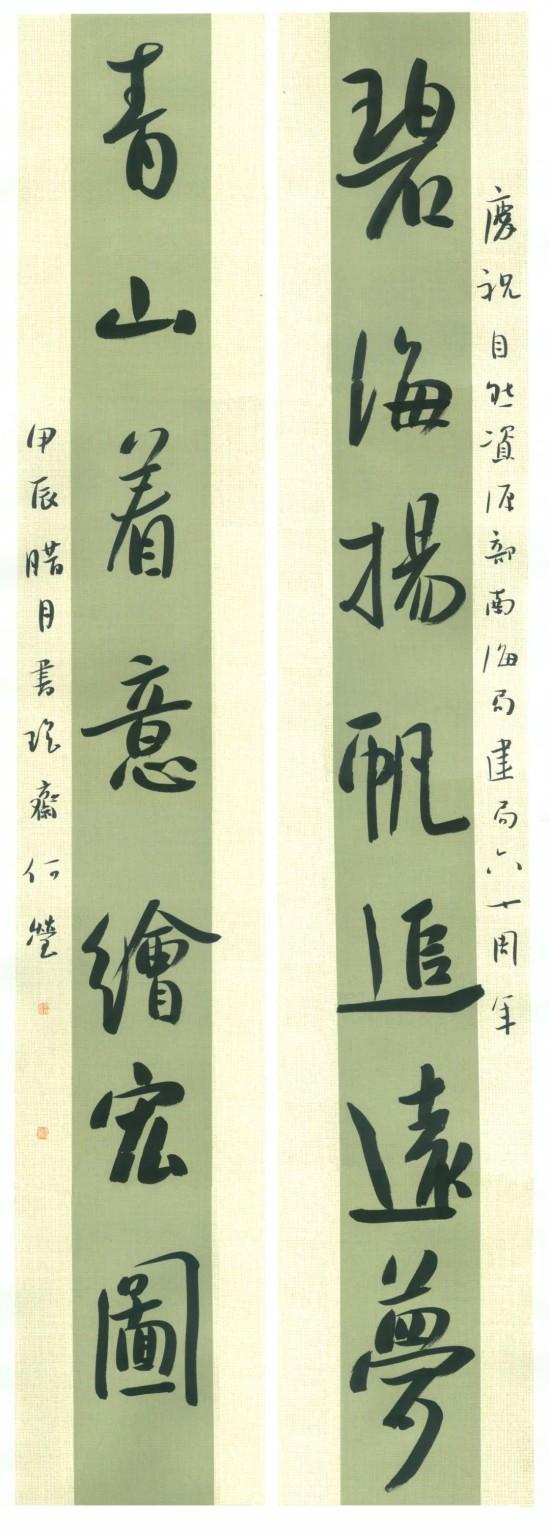 慶祝自然資源部南海局建局六十周年
碧海揚帆追遠夢
青山着意繪宏圖
甲辰腊月書瑤齋何瑩